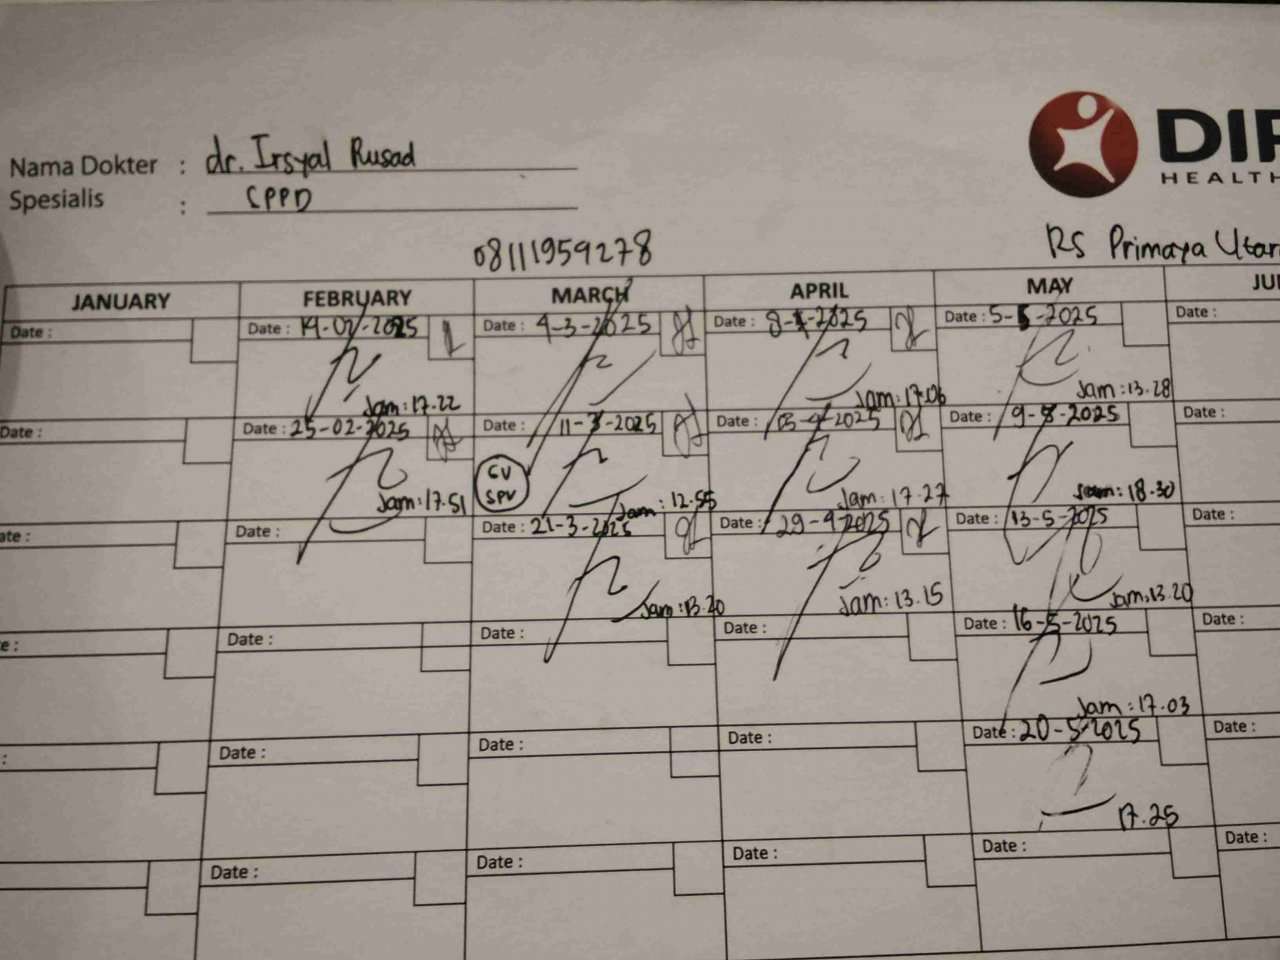 Nama Dokter : dr. Irsyal Rusad
Spesialis : CPPD
DI
HEALTH
08111959278
RS Primaya Utar
JANUARY FEBRUARY MARCH APRIL MAY JU
Date : Date : 14-02-2025 Date : 4-3-2025 Date : 8-4-2025 Date : 5-5-2025 Date :
Jam: 17.22 Jam: 17.06 Jam: 13.28
Date : Date : 25-02-2025 Date : 11-3-2025 Date : -4-2025 Date : 9-5-2025 Date :
CV
SPV
Jam: 17.51 Jam: 12.55 Jam: 17.27 Jam: 18.30
ate : Date : Date : 21-3-2025 Date : 29-4-2025 Date : 13-5-2025 Date :
Jam: 13.20 Jam: 13.15 Jam: 13.20
e : Date : Date : Date : Date : 16-5-2025 Date :
Jam: 17.03
: Date : Date : Date : Date : 20-5-2025 Date :
17.25
Date : Date : Date : Date : Date :